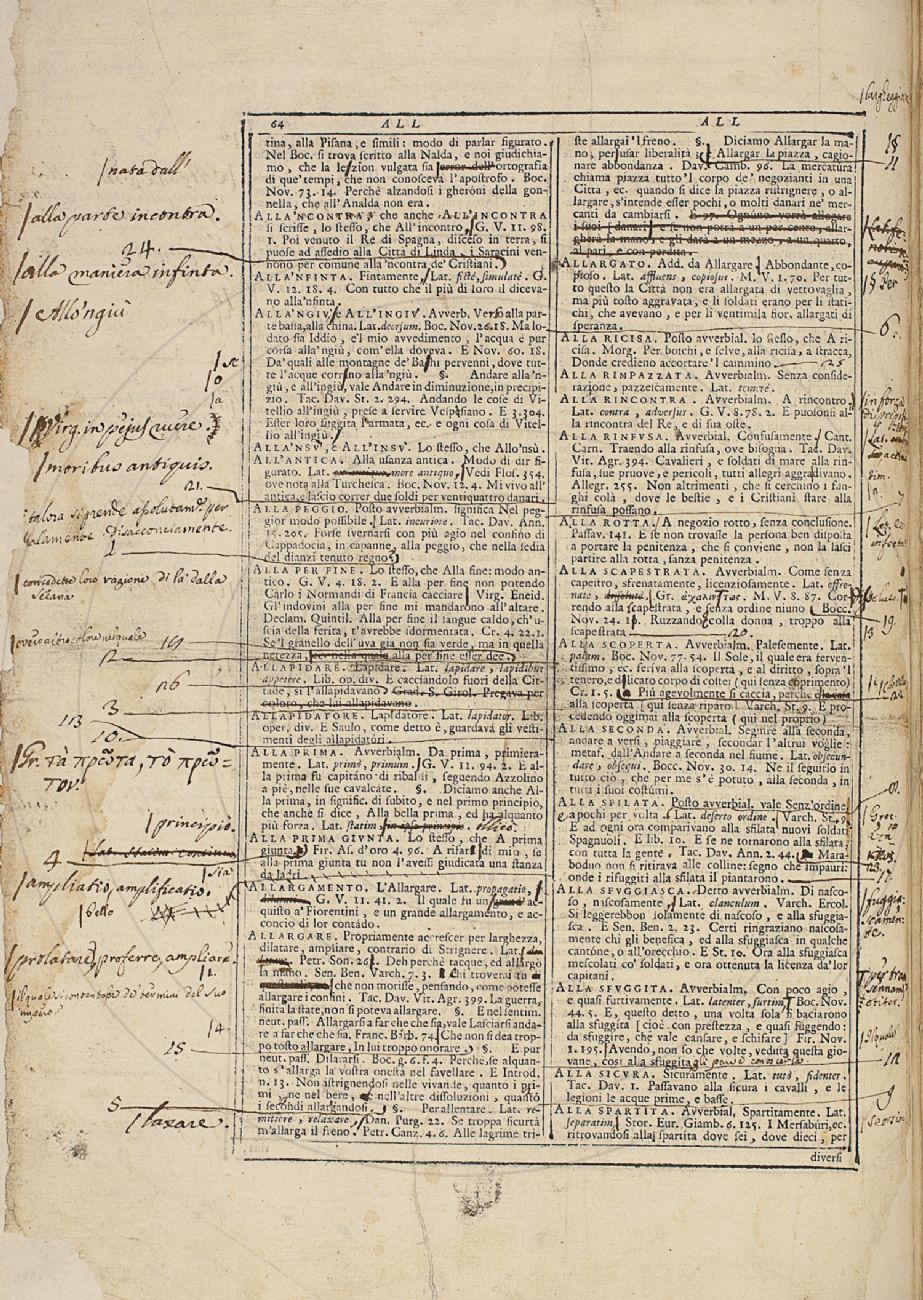 64 ALL
ALL
tina, alla Pisana, e simili: modo di parlar figurato.
Nel Boc. si trova scritto alla Nalda, e noi giudichia-
mo, che la lezion vulgata sia error dell'ortografia
di que' tempi, che non conosceva l'apostrofo. Boc.
Nov. 73. 14. Perchè alzandosi i gheroni della gon-
nella, che all'Analda non era.
ALLA'NCONTRA, che anche ALL'INCONTRA
si scrisse, lo stesso, che All'incontro, G. V. 11. 98.
1. Poi venuto il Re di Spagna, disceso in terra, si
puose ad assedio alla Città di Linda, i Saracini ven-
nono per comune alla'ncontra de' Cristiani.
ALLA'NFINTA. Fintamente. Lat. fictè, simulatè. G.
V. 12. 18. 4. Con tutto che il più di loro il diceva-
no alla'nfinta.
ALLA'NGIV, e ALL'INGIV. Avverb. Verso alla par-
te bassa, alla china. Lat. deorsum. Boc. Nov. 26. 18. Ma lo-
dato sia Iddio, e'l mio avvedimento, l'acqua è pur
corsa alla'ngiù, com'ella doveva. E Nov. 60. 18.
Da' quali alle montagne de' Bachi pervenni, dove tut-
te l'acque corrono alla'ngiù. §. Andare alla'n-
giù, e all'ingiù, vale Andare in diminuzione, in precipi-
zio. Tac. Dav. St. 2. 294. Andando le cose di Vi-
tellio all'ingiù, prese a servire Vespasiano. E 3. 304.
Esser loro suggita l'armata, ec. e ogni cosa di Vitel-
lio all'ingiù.
ALLA'NSV, e ALL'INSV. Lo stesso, che Allo'nsù.
ALL'ANTICA. Alla usanza antica. Modo di dir fi-
gurato. Lat. more antiquo. Vedi Flos. 354.
ove nota alla Turchesca. Boc. Nov. 12. 4. Mi vivo all'
antica, e lascio correr due soldi per ventiquattro danari.
ALLA PEGGIO. Posto avverbialm. significa Nel peg-
gior modo possibile. Lat. incuriose. Tac. Dav. Ann.
15. 205. Forse svernarsi con più agio nel confino di
Cappadocia, in capanne, alla peggio, che nella sedia
del dianzi tenuto regno?
ALLA PER FINE. Lo stesso, che Alla fine: modo an-
tico. G. V. 4. 18. 2. E alla per fine non potendo
Carlo i Normandi di Francia cacciare. Virg. Eneid.
Gl'indovini alla per fine mi mandarono all'altare.
Declam. Quintil. Alla per fine il sangue caldo, ch'u-
scia della ferita, t'avrebbe sdormentata. Cr. 4. 22. 1.
Se'l granello dell'uva già non sia verde, ma in quella
nerezza, ec. nella quale alla per fine esser dee.
ALLAPIDARE. Lapidare. Lat. lapidare, lapidibus
appetere. Lib. op. div. E cacciandolo fuori della Cit-
tade, si l'allapidavano. Grad. S. Girol. Pregava per
coloro, che lui allapidavano.
ALLAPIDATORE. Lapidatore. Lat. lapidator. Lib.
oper. div. E Saulo, come detto è, guardava gli vesti-
menti degli allapidatori.
ALLA PRIMA. Avverbialm. Da prima, primiera-
mente. Lat. primò, primum. G. V. 11. 94. 2. E al-
la prima fu capitano di ribaldi, seguendo Azzolino
a piè, nelle sue cavalcate. §. Diciamo anche Al-
la prima, in signific. di subito, e nel primo principio,
che anche si dice, Alla bella prima, ed ha alquanto
più forza. Lat. statim, in ipso principio. illico.
ALLA PRIMA GIUNTA. Lo stesso, che A prima
giunta. Fir. As. d'oro 4. 96. A rifarsi di mio, se
alla prima giunta tu non l'avessi giudicata una stanza
da ladri.
ALLARGAMENTO. L'Allargare. Lat. propagatio,
G. V. 11. 41. 2. Il quale fu un grand'ac-
quisto a' Fiorentini, e un grande allargamento, e ac-
concio di lor contado.
ALLARGARE. Propriamente accrescer per larghezza,
dilatare, ampliare, contrario di Strignere. Lat.
Petr. Son. 26. Deh perchè tacque, ed allargò
la mano. Sen. Ben. Varch. 7. 3. Chi troverai tu
che non morisse, pensando, come potesse
allargare i confini. Tac. Dav. Vit. Agr. 399. La guerra,
finita la state, non si poteva allargare. §. E nel sentim.
neut. pass. Allargarsi a far che che sia, vale Lasciarsi anda-
re a far che che sia. Franc. Barb. 74. Che non si dea trop-
po tosto allargare, In lui troppo onorare. §. E pur
neut. pass. Dilatarsi. Boc. g. 6. f. 4. Perchè, se alquan-
to s'allarga la vostra onestà nel favellare. E Introd.
n. 13. Non istrignendosi nelle vivande, quanto i pri-
mi, ne nel bere, e nell'altre dissoluzioni, quanto
i secondi allargandosi. §. Per allentare. Lat. re-
mittere, relaxare. Dan. Purg. 22. Se troppa sicurtà
m'allarga il freno. Petr. Canz. 4. 6. Alle lagrime tri-
ste allargai 'l freno. §. Diciamo Allargar la ma-
no, per usar liberalità. Allargar la piazza, cagio-
nare abbondanza. Dav. Camb. 96. La mercatura
chiama piazza tutto'l corpo de' negozianti in una
Città, ec. quando si dice la piazza ristrignere, o al-
largare, s'intende esser pochi, o molti danari ne' mer-
canti da cambiarsi. E 97. Ognuno vorrà allogare
i suoi [danari] e se non potrà a un per cento, allar-
gherà la mano, e gli darà a un mezzo, a un quarto,
al pari, e con perdita.
ALLARGATO. Add. da Allargare. Abbondante, co-
pioso. Lat. affluens, copiosus. M. V. 1. 70. Per tut-
to questo la Città non era allargata di vettovaglia,
ma più tosto aggravata, e li soldati erano per li stati-
chi, che avevano, e per li ventimila fior. allargati di
speranza.
ALLA RICISA. Posto avverbial. lo stesso, che A ri-
cisa. Morg. Per boschi, e selve, alla ricisa, a stracca,
Donde credieno accortare'l cammino.
ALLA RIMPAZZATA. Avverbialm. Senza conside-
razione, pazzescamente. Lat. temerè.
ALLA RINCONTRA. Avverbialm. A rincontro.
Lat. contra, adversus. G. V. 8. 78. 2. E puosonsi al-
la rincontra del Re, e di sua oste.
ALLA RINFUSA. Avverbial. Confusamente. Cant.
Carn. Traendo alla rinfusa, ove bisogna. Tac. Dav.
Vit. Agr. 394. Cavalieri, e soldati di mare alla rin-
fusa, sue pruove, e pericoli, tutti allegri aggradivano.
Allegr. 255. Non altrimenti, che si cerchino i fun-
ghi colà, dove le bestie, e i Cristiani stare alla
rinfusa possano.
ALLA ROTTA. A negozio rotto, senza conclusione.
Passav. 141. E se non trovasse la persona ben disposta
a portare la penitenza, che si conviene, non la lasci
partire alla rotta, sanza penitenza.
ALLA SCAPESTRATA. Avverbialm. Come senza
capestro, sfrenatamente, licenziosamente. Lat. effre-
nate, dissolutè. Gr. M. V. 8. 87. Cor-
rendo alla scapestrata, e senza ordine niuno. Bocc.
Nov. 24. Ruzzando colla donna, troppo alla
scapestrata
ALLA SCOPERTA. Avverbialm. Palesemente. Lat.
palam. Boc. Nov. 77. 54. Il Sole, il quale era ferven-
tissimo, ec. feriva alla scoperta, e al diritto, sopra'l
tenero, e dilicato corpo di costei (qui senza coprimento)
Cr. 1. 5. Più agevolmente si caccia, perche
alla scoperta [qui senza riparo]. Varch. St. 9. E pro-
cedendo oggimai alla scoperta (qui nel proprio)
ALLA SECONDA. Avverbial. Seguire alla seconda,
andare a versi, piaggiare, secondar l'altrui voglie:
metaf. dall'Andare a seconda nel fiume. Lat. obsecun-
dare, obsequi. Bocc. Nov. 30. 14. Ne il seguirlo in
tutto ciò, che per me s'è potuto, alla seconda, in
tutti i suoi costumi.
ALLA SFILATA. Posto avverbial. vale Senz'ordine,
e a pochi per volta. Lat. deserto ordine. Varch. St. 9.
E ad ogni ora comparivano alla sfilata nuovi soldati
Spagnuoli. E lib. 10. E se ne tornarono alla sfilata
con tutta la gente. Tac. Dav. Ann. 2. 44. Mara-
boduo non si ritirava alle colline: segno che impauri:
onde i rifuggiti alla sfilata il piantarono.
ALLA SFVGGIASCA. Detto avverbialm. Di nasco-
so, niscosamente. Lat. clanculum. Varch. Ercol.
Si leggerebbon solamente di nascoso, e alla sfuggia-
sca. E Sen. Ben. 2. 23. Certi ringraziano nascosa-
mente chi gli benefica, ed alla sfuggiasca in qualche
cantone, o all'orecchio. E St. 10. Ora alla sfuggiasca
mescolati co' soldati, e ora ottenuta la licenza da'lor
capitani.
ALLA SFVGGITA. Avverbialm. Con poco agio,
e quasi furtivamente. Lat. latenter, furtim. Boc. Nov.
44. 5. E, questo detto, una volta sola si baciarono
alla sfuggita [cioè con prestezza, e quasi fuggendo:
da sfuggire, che vale cansare, e schifare] Fir. Nov.
1. 195. Avendo, non so che volte, veduta questa gio-
vane, così alla sfuggita
ALLA SICVRA. Sicuramente. Lat. tutò, fidenter.
Tac. Dav. 1. Passavano alla sicura i cavalli, e le
legioni le acque prime, e basse.
ALLA SPARTITA. Avverbial. Spartitamente. Lat.
separatim. Stor. Eur. Giamb. 6. 125. I Mersaburi, ec.
ritrovandosi alla spartita dove sei, dove dieci, per
diversi
nata dall'
alla parte incontra.
24.
alla maniera infinta.
e Allo'ngiù
Virg. in pejus ruere.
moribus antiquis.
21.
19
12
26
3
113
10
Gr. τὰ πρῶτα, τὸ πρῶ-
τον.
principio.
4
ampliatio, amplificatio.
bello
prolatare, proferre, ampliare
14.
15
5
laxare.
18
11
6
25
7
19
20
9